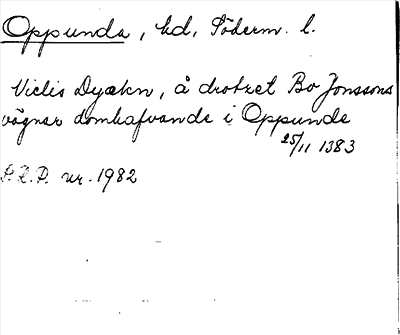 Oppunda, hd, Söderm. l.
Niclis Dyækn, å drotzet Bo Jonssons
vägnar domhafvande i Oppunde
25/11 1383
S.R.P. nr. 1982